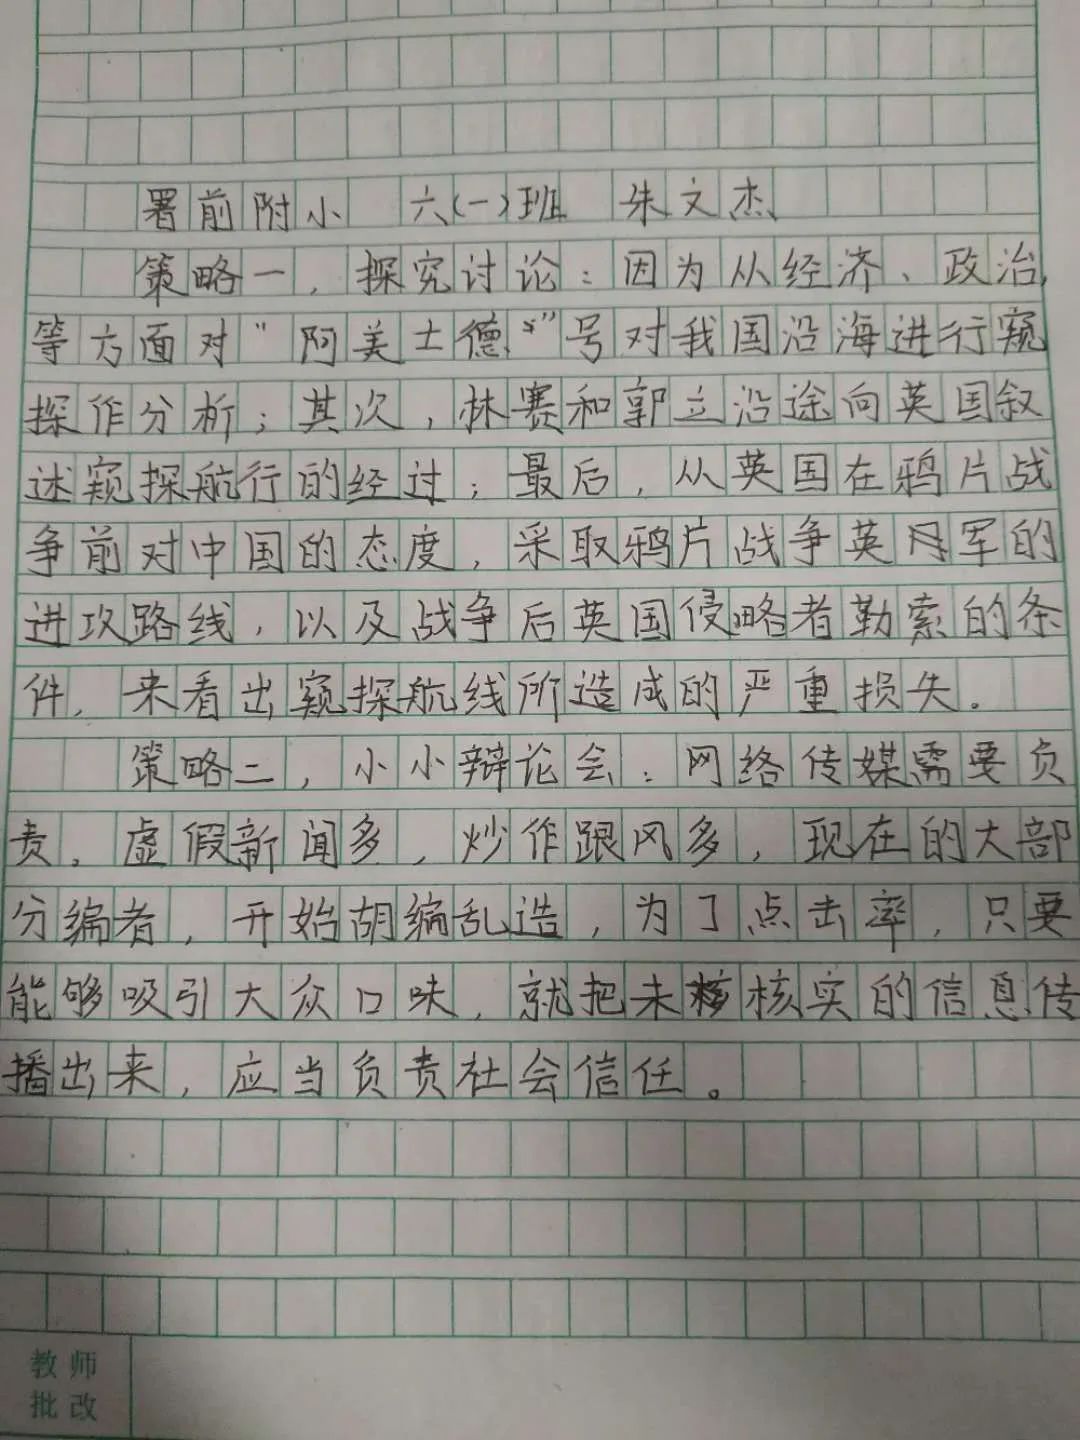 署前附小 六(一)班 朱文杰
策略一，探究讨论：因为从经济、政治，
等方面对“阿美士德”号对我国沿海进行窥
探作分析；其次，林赛和郭立沿途向英国叙
述窥探航行的经过；最后，从英国在鸦片战
争前对中国的态度，采取鸦片战争英军的
进攻路线，以及战争后英国侵略者勒索的条
件，来看出窥探航线所造成的严重损失。
策略二，小小辩论会：网络传媒需要负
责。虚假新闻多，炒作跟风多，现在的大部
分编者，开始胡编乱造，为了点击率，只要
能够吸引大众口味，就把未核实的信息传
播出来，应当负责社会信任。
教师
批改